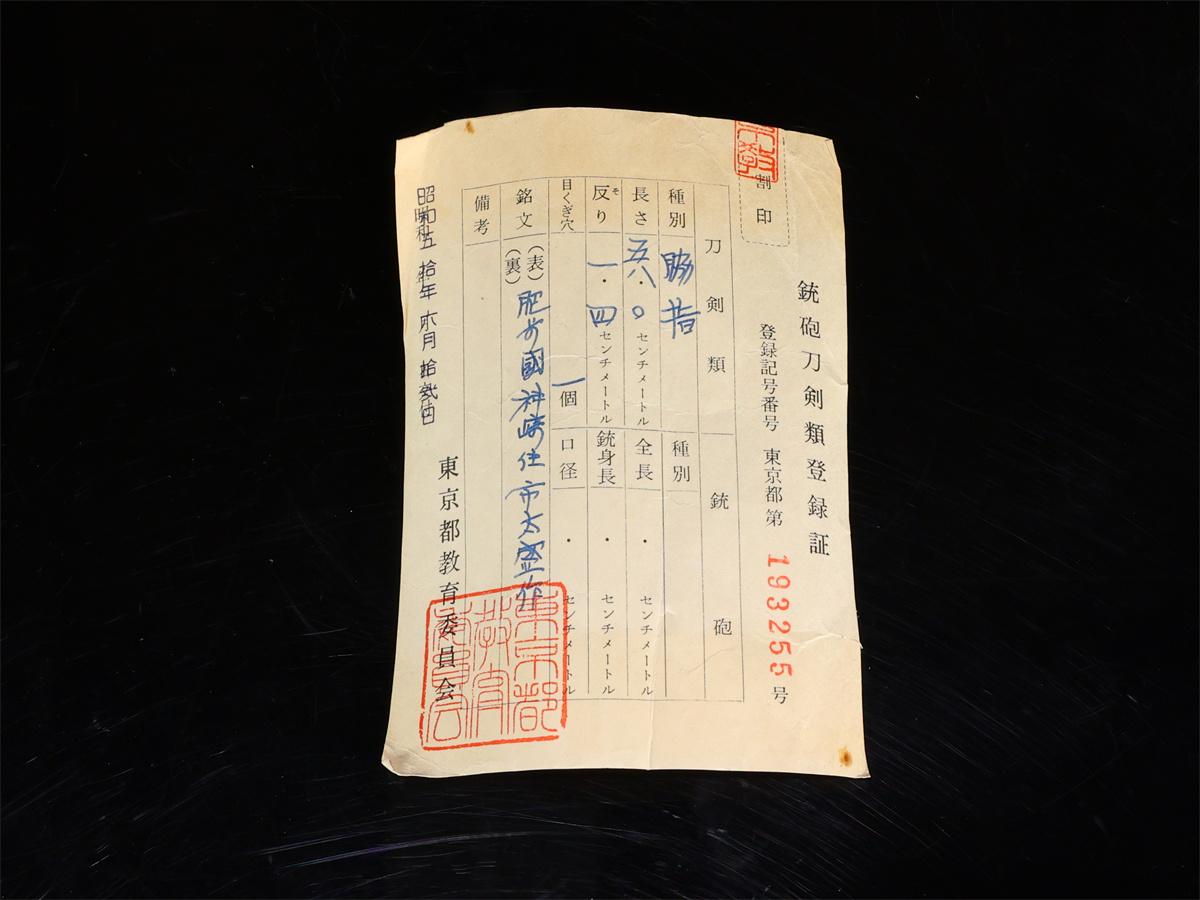 割印
銃砲刀剣類登録証
登録記号番号 東京都第 193255 号
刀剣類 銃砲
種別 脇差 種別
長さ 五八・〇 センチメートル 全長 ・ センチメートル
反り 一・四 センチメートル 銃身長 ・ センチメートル
目くぎ穴 一個 口径 ・ センチメートル
銘文 (表) 肥前國神崎住市太盛作
(裏)
備考
昭和五拾年 月拾弐日
東京都教育委員会
東京都教育委員会